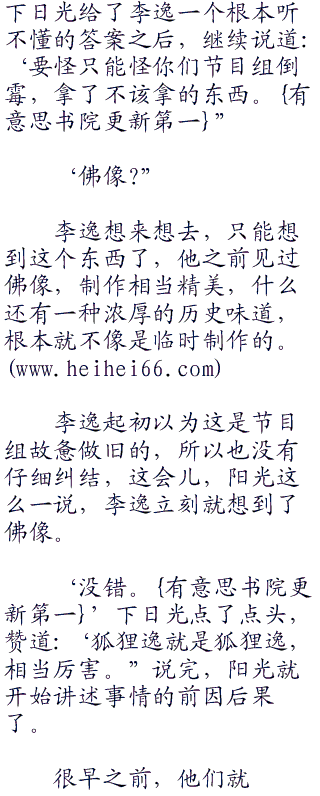 下日光给了李逸一个根本听
不懂的答案之后，继续说道:
‘要怪只能怪你们节目组倒
霉，拿了不该拿的东西。{有
意思书院更新第一}”
‘佛像?”
李逸想来想去，只能想
到这个东西了，他之前见过
佛像，制作相当精美，什么
还有一种浓厚的历史味道，
根本就不像是临时制作的。
(www.heihei66.com)
李逸起初以为这是节目
组故惫做旧的，所以也没有
仔细纠结，这会儿，阳光这
么一说，李逸立刻就想到了
佛像。
‘没错。{有意思书院更
新第一}’下日光点了点头，
赞道:‘狐狸逸就是狐狸逸，
相当厉害。”说完，阳光就
开始讲述事情的前因后果
了。
很早之前，他们就